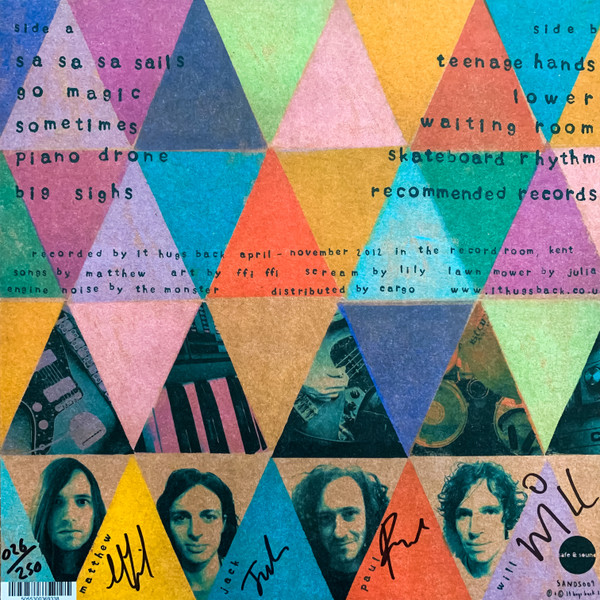 side a
sa sa sa sails
go magic
sometimes
piano drone
big sighs
side b
teenage hands
lower
waiting room
skateboard rhythm
recommended records
recorded by It hugs back april - november 2012 in the record room, kent
songs by matthew art by ffi ffi scream by lily lawn mower by julia
engine noise by the monster distributed by cargo www.ithugsback.co.u
026/250
matthew
jack
Jack
paul
will
Will
safe & sound
SANDS007
5055300369338